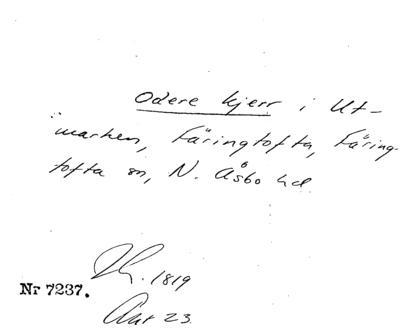 Odere kjerr i Ut-
marken, Färingtofta, Färing-
tofta sn, N. Åsbo hd
1819
Nr 7237.
Akt 23.